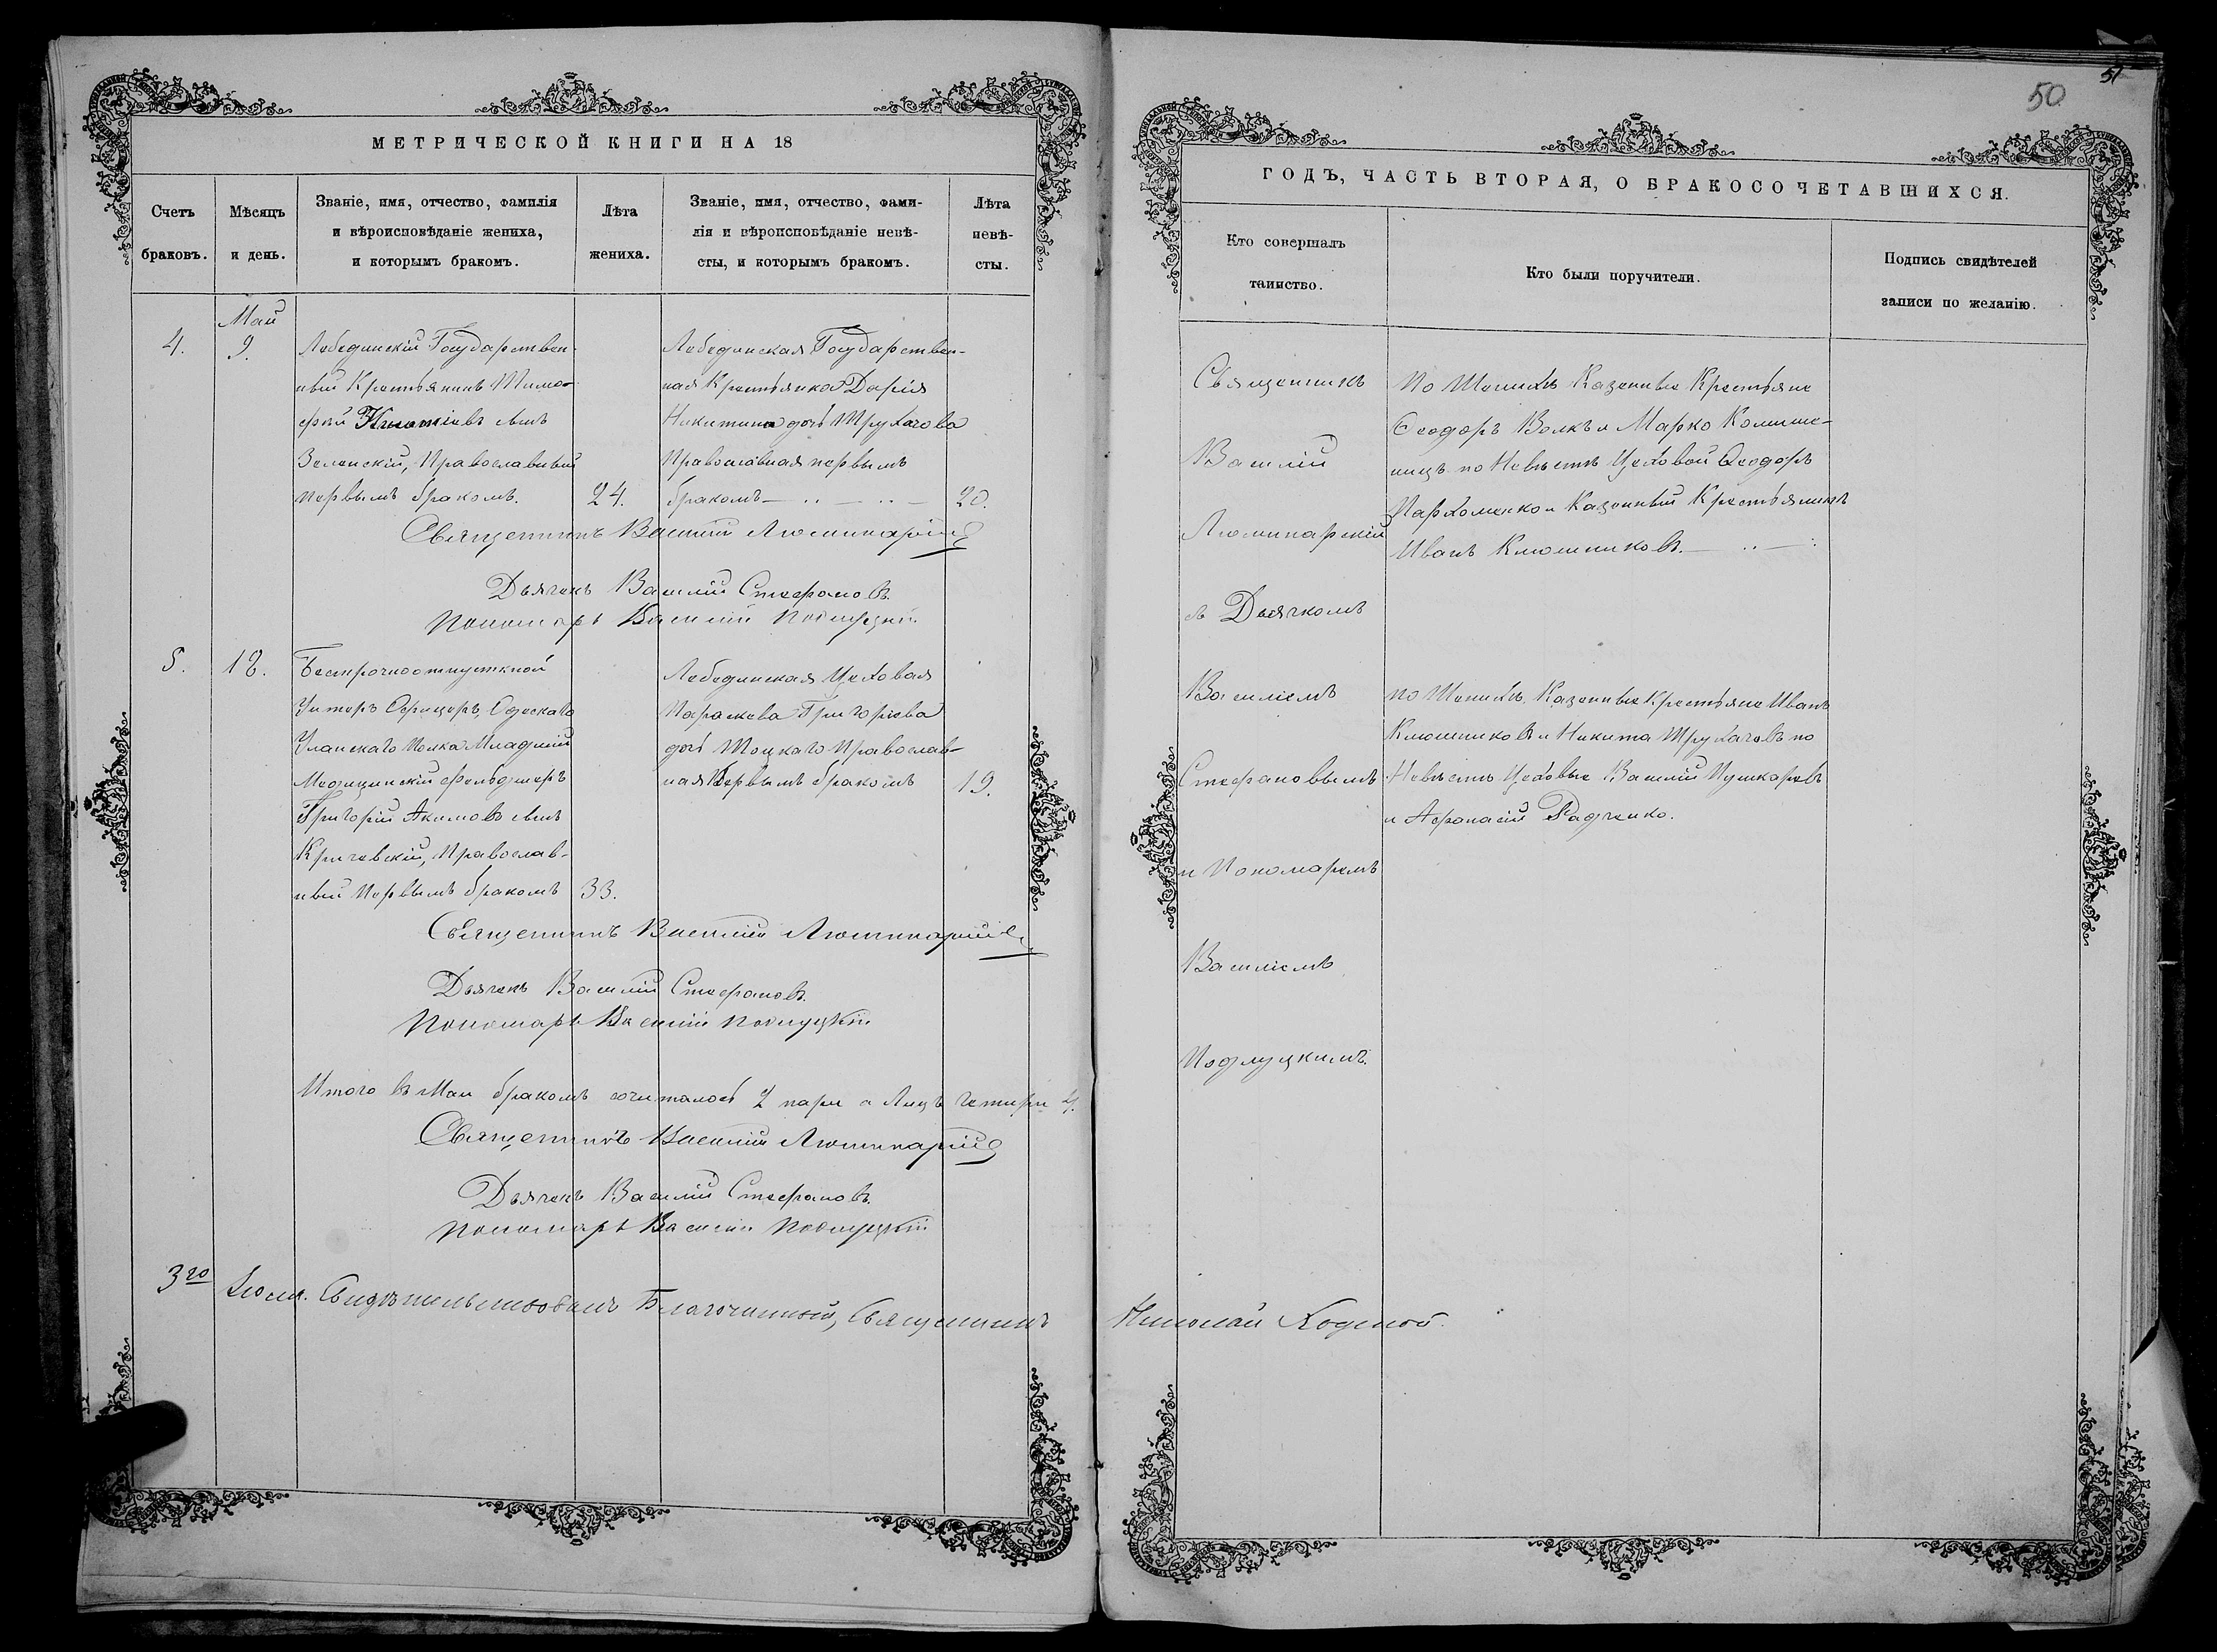 МЕТРИЧЕСКОЙ КНИГИ НА 18
Счетъ браковъ.
Мѣсяцъ и день.
Званіе, имя, отчество, фамилія
и вѣроисповѣданіе жениха,
и которымъ бракомъ.
Лѣта жениха.
Званіе, имя, отчество, фами-
лія и вѣроисповѣданіе невѣ-
сты, и которымъ бракомъ.
Лѣта невѣ-
сты.
Май
4.
9.
Лебединскій Государствен-
ный Крестьянинъ Тимо-
фей сынъ
Зеленскій, Православный
первымъ бракомъ.
24.
Лебединская Государствен-
ная Крестьянка Дарія
Никитина дочь Трухачова
Православная первымъ
бракомъ
20.
Священникъ Василій Люминарскій
Дьячекъ Василій Стефановъ.
Пономарь Василій Подлуцкій
5.
18.
Безсрочноотпускной
Унтеръ Офицеръ, Одескаго
Уланскаго Полка Младшій
Медицинскій фельдшеръ
Григорій Акимовъ сынъ
Кричевскій, Православ-
ный Первымъ бракомъ
33.
Лебединская Цеховая
Параскева Григоріева
дочь Тоцкаго Православ-
ная Первымъ бракомъ
19.
Священникъ Василій Люминарскій
Дьячекъ Василій Стефановъ.
Пономарь Василій Подлуцкій
Итого въ Маи бракомъ сочиталось 2 пары а Лицъ четыри 4.
Священникъ Василій Люминарскій
Дьячекъ Василій Стефановъ.
Пономарь Василій Подлуцкій
3го Іюля. Свидѣтельствовалъ Благочинный, Священникъ Николай Ходской.
50
51
ГОДЪ, ЧАСТЬ ВТОРАЯ, О БРАКОСОЧЕТАВШИХСЯ.
Кто совершалъ
таинство.
Кто были поручители.
Подпись свидѣтелей
записи по желанію.
Священникъ
Василій
Люминарскій
съ Дьячкомъ
Василіемъ
Стефановымъ
и Пономаремъ
Василіемъ
Подлуцкимъ.
По Женихѣ Казенные Крестьяне
Ѳеодоръ Волкъ и Марко Комыше-
нецъ по Невѣстѣ Цеховой Ѳеодоръ
Пархоменко и Казенный Крестьянинъ
Иванъ Клюшниковъ.
по Женихѣ Казенные Крестьяне Иванъ
Клюшниковъ и Никита Трухачовъ по
Невѣстѣ Цеховые Василій Пушкаревъ
и Афанасій Радченко.